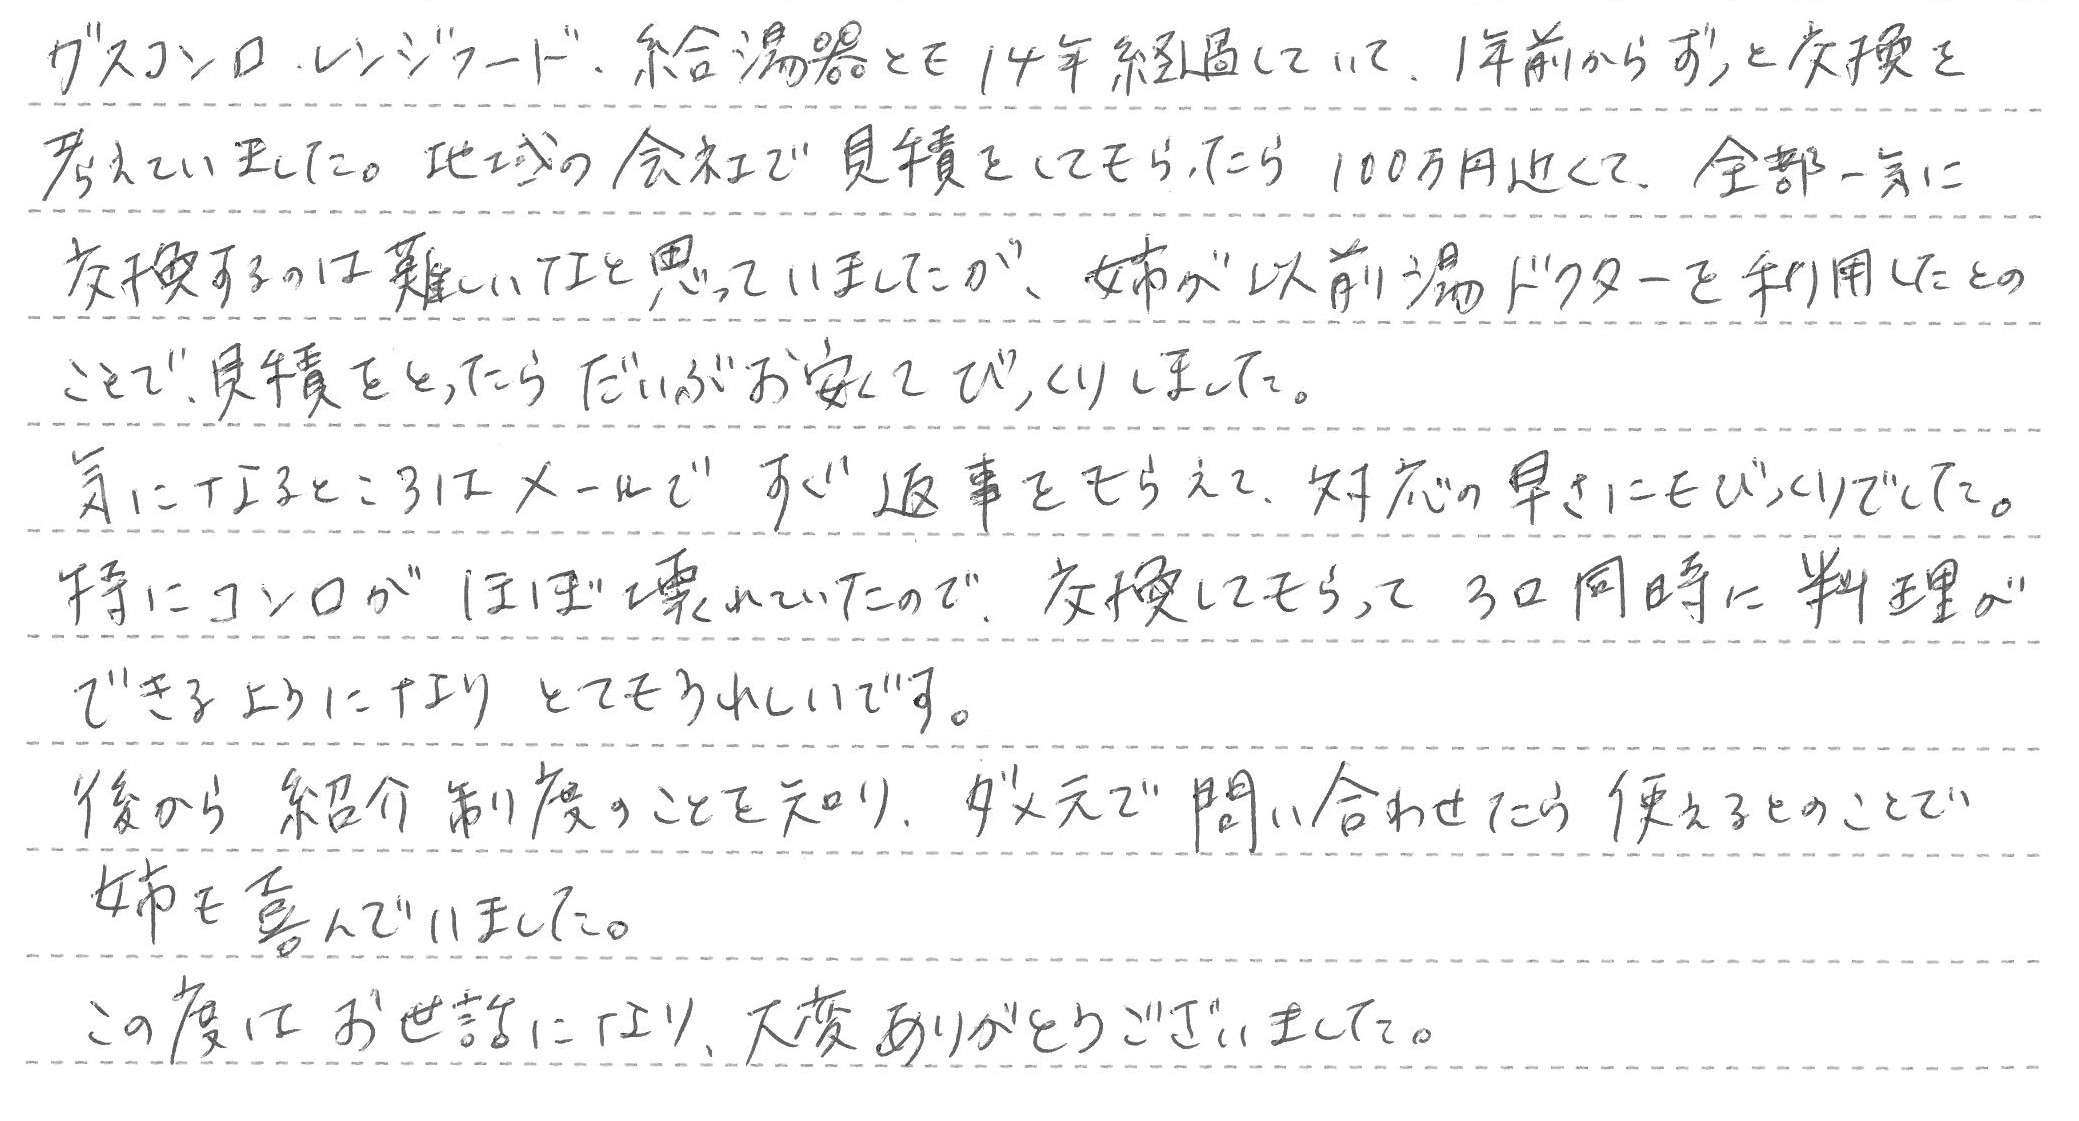 ガスコンロ、レンジフード、給湯器とも14年経過していて、1年前からずっと交換を
考えていました。地域の会社で見積をしてもらったら100万円近くて、全部一気に
交換するのは難しいなと思っていましたが、姉が以前湯ドクターを利用したとの
ことで、見積をとったらだいぶお安くてびっくりしました。
気になるところはメールですぐ返事をもらえて、対応の早さにもびっくりでした。
特にコンロがほぼ壊れていたので、交換してもらって3口同時に料理が
できるようになりとてもうれしいです。
後から紹介制度のことを知り、ダメ元で問い合わせたら使えるとのことで
姉も喜んでいました。
この度はお世話になり、大変ありがとうございました。